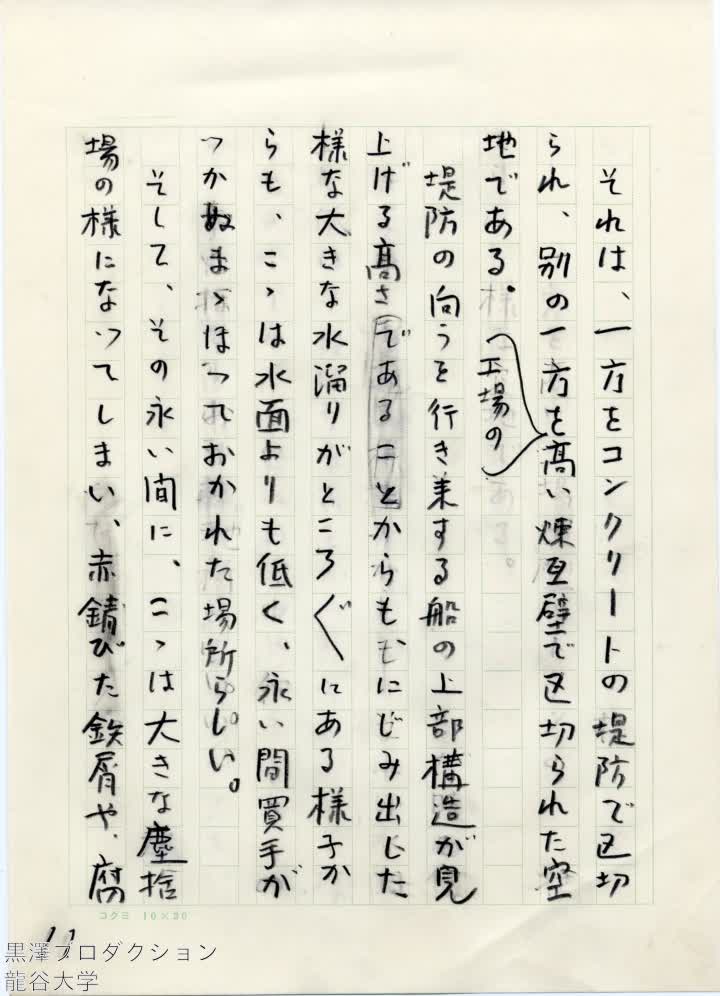 それは、一方をコンクリートの堤防で区切
られ、別の一方を高い煉瓦壁で区切られた空
工場の
地である。
堤防の向うを行き来する船の上部構造が見
上げる高さであることからもにじみ出した
様な大きな水溜りがところ〴〵にある様子か
らも、こゝは水面よりも低く、永い間買手が
つかぬまゝほっておかれた場所らしい。
そして、その永い間に、こゝは大きな塵捨
場の様になってしまい、赤錆びた鉄屑や、腐
コクヨ 10×20
11
黒澤プロダクション
龍谷大学